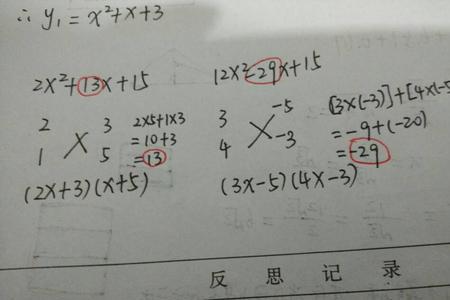 ∴ y₁ = x²+x+3
2x²+13x+15
2 3 2×5+1×3
1 5 =10+3
=13
(2x+3)(x+5)
12x²-29x+15
3 -5 [3×(-3)]+[4×(-5
4 -3 =-9+(-20)
=-29
(3x-5)(4x-3)
反思记录